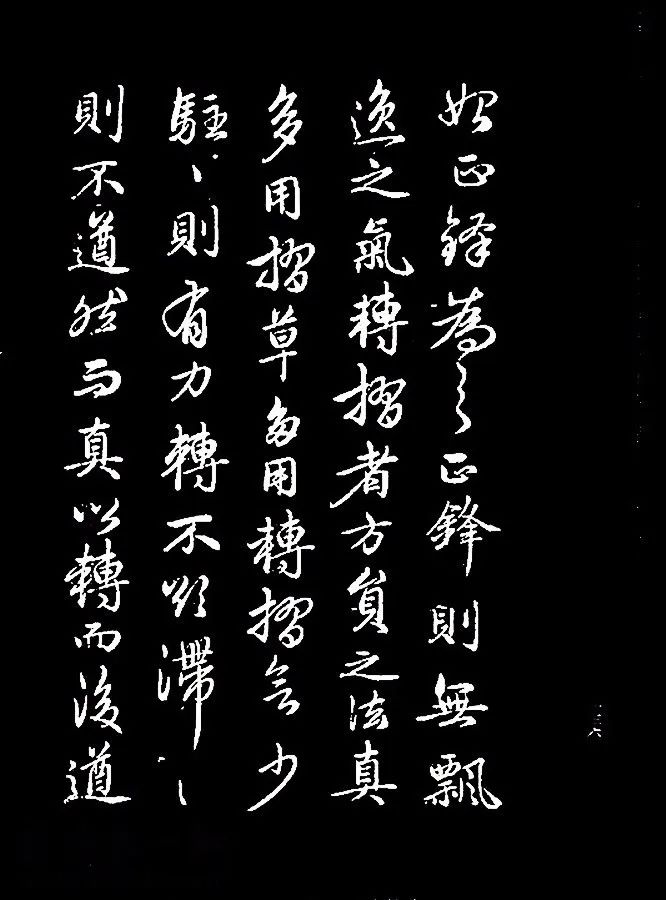 始正鋒為之正鋒則無飄
逸之氣轉摺者方員之法真
多用摺草多用轉摺少
駐〻則有力轉不欲滯〻
則不遒然而真以轉而後遒